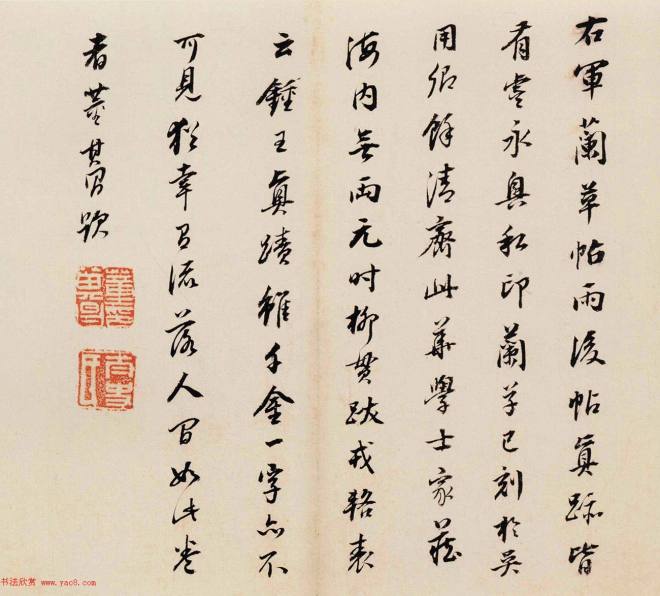 右軍蘭草帖雨後帖真跡皆
有虞永興私印蘭草已刻於吳
用卿餘清齋此華學士家藏
海内無兩元時柳貫跋戎輅表
云鍾王真蹟雖千金一字亦不
可見猶幸有流落人間如此卷
者董其昌題
书法欣赏 www.yac8.com